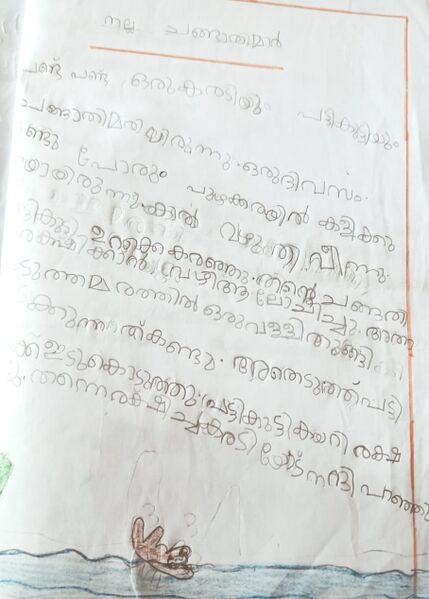 നല്ല ചങ്ങാതിമാർ
പണ്ട് പണ്ട് ഒരുകരടിയും പട്ടികുട്ടിയും
ചങ്ങാതിമതിയിരുന്നു. ഒരുദിവസം.
ണ്ടു പോരും പുഴക്കരയിൽ കളിക്കു
യായിരുന്നു. കാൽ വഴുതി വീണു.
ട്ടികുട്ടി ഉറക്കെ കരഞ്ഞു. തന്റെ ചങ്ങതി
രക്ഷിക്കാൻ വഴി ആലോചിച്ചു. അതാ
ടുത്തമരത്തിൽ ഒരുവള്ളിതൂങ്ങി
ക്കുന്നത്കണ്ടു. അതെടുത്ത്പട്ടി
ക്ക് ഇട്ടുകൊടുത്തു. പട്ടികുട്ടികയറി രക്ഷ
തന്നെരക്ഷിച്ചകരടിയോട് നന്ദി പറഞ്ഞു